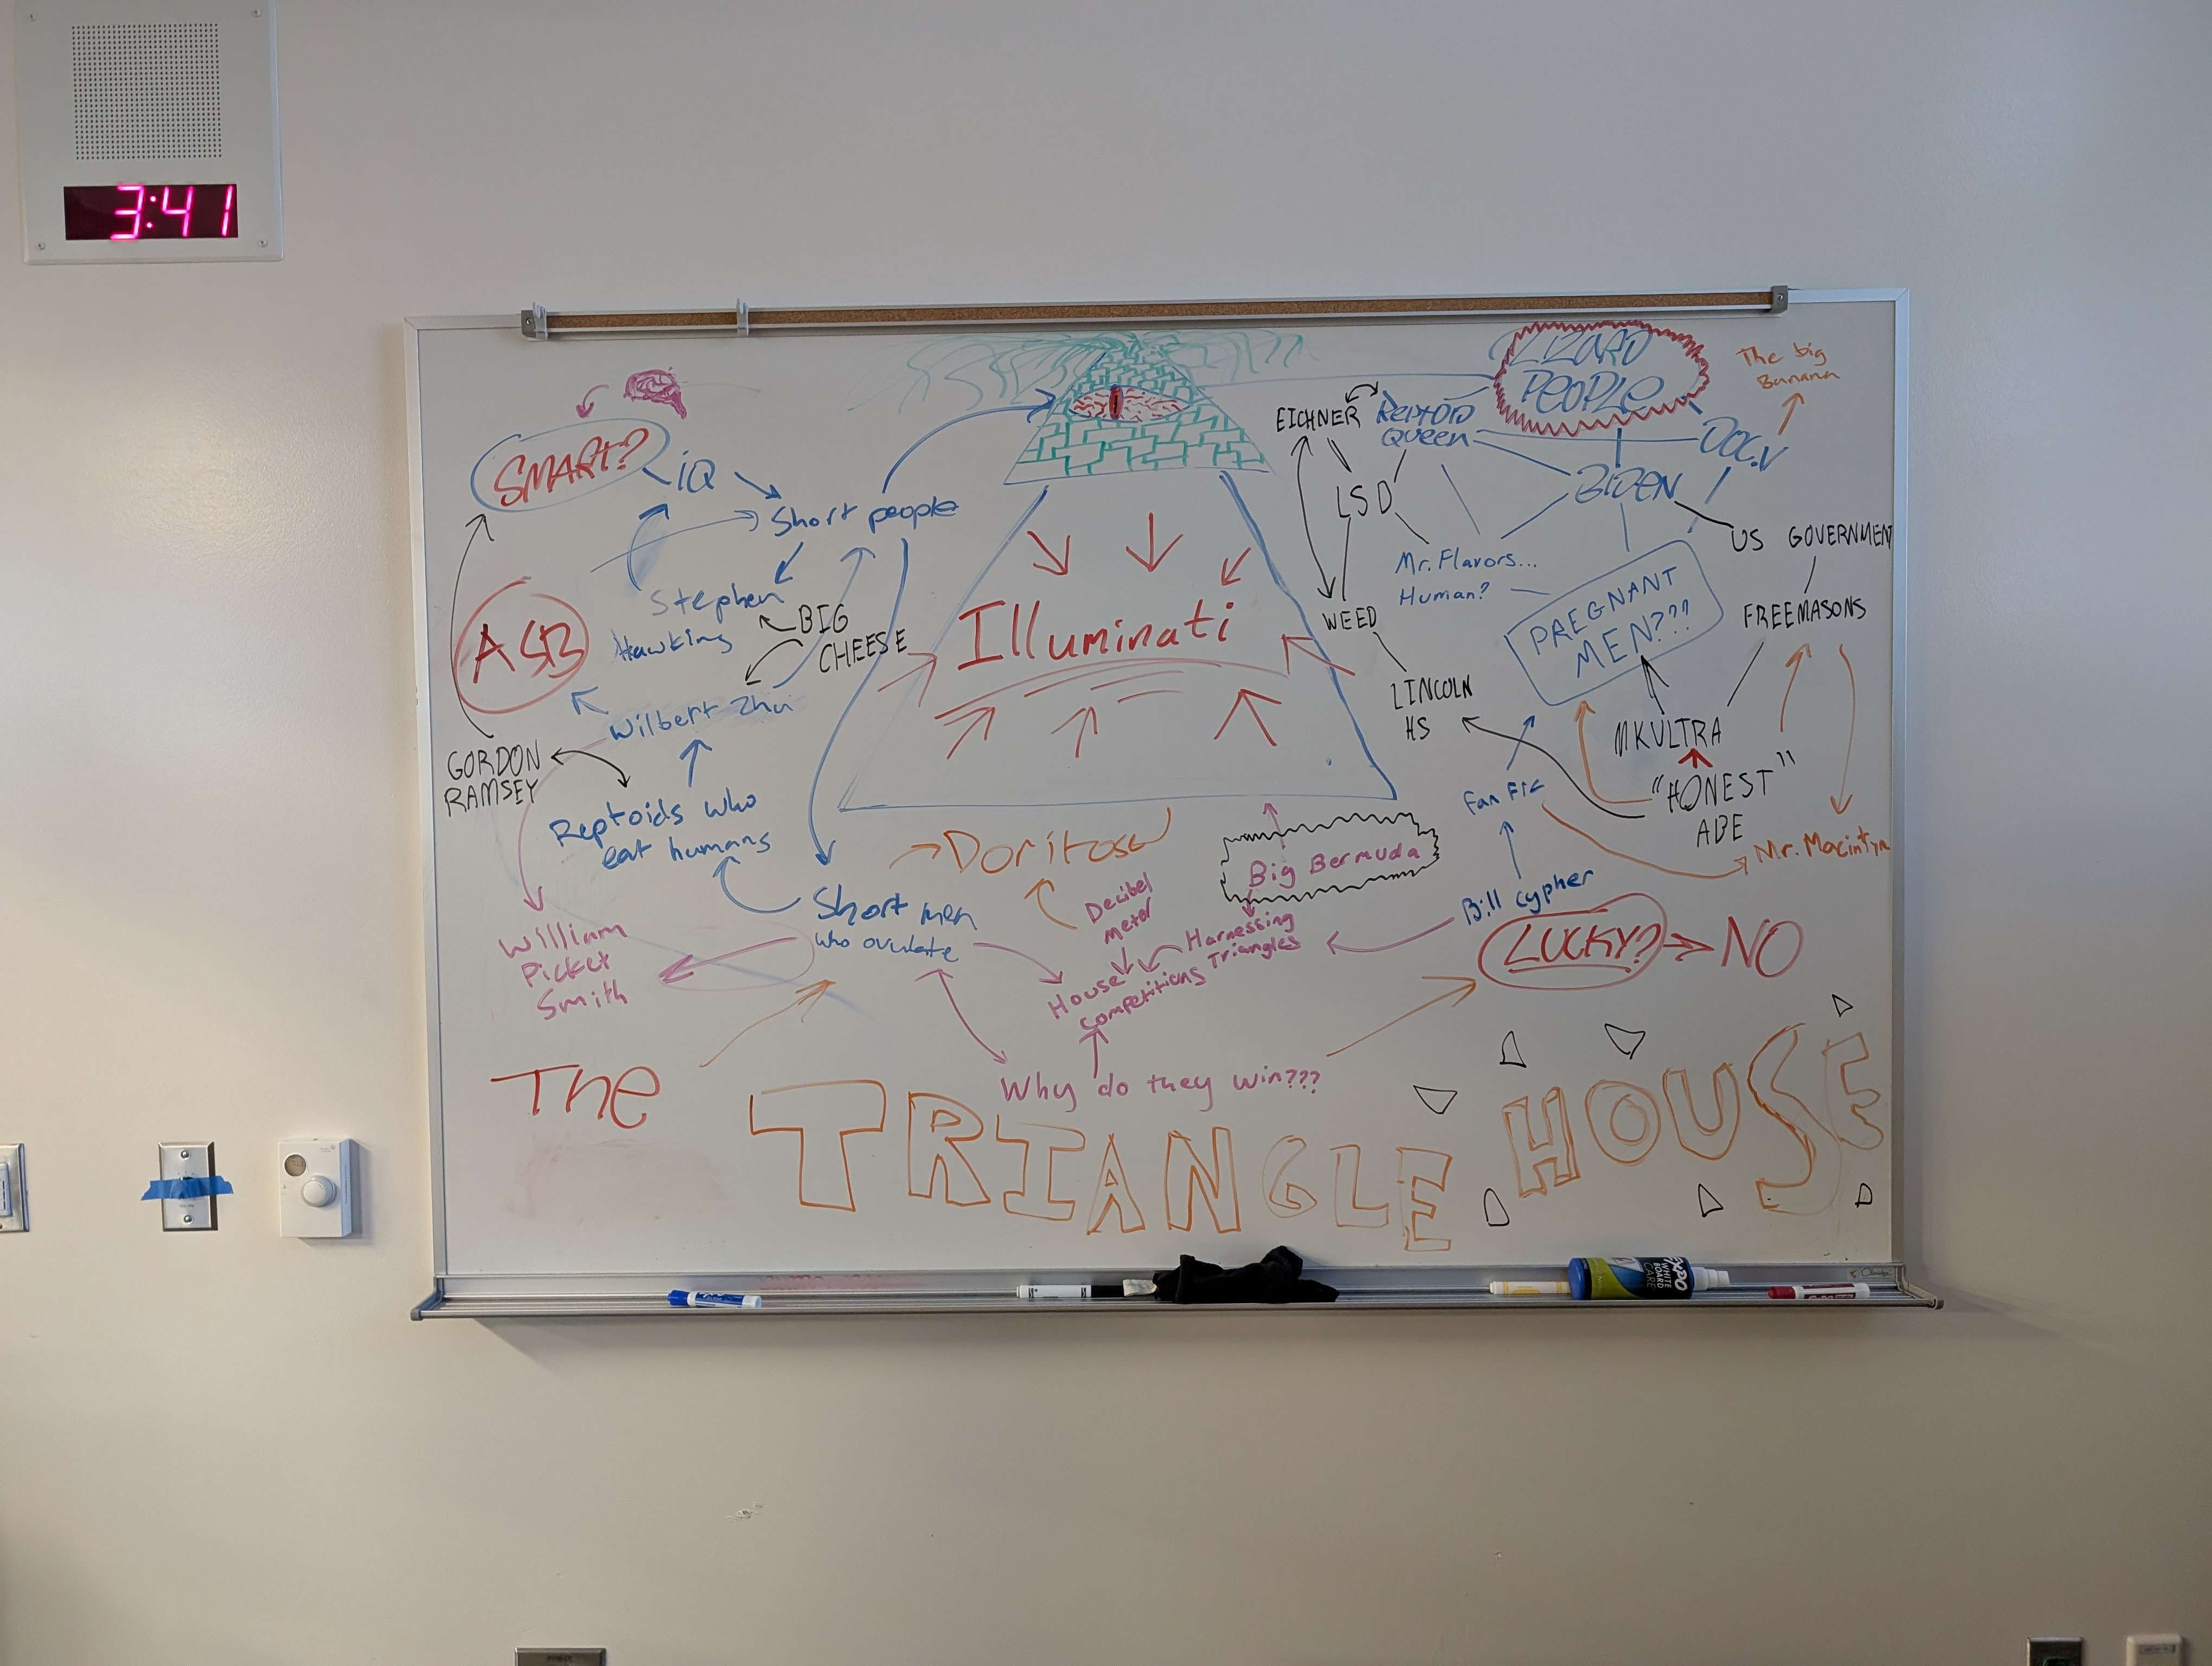 3:41
LIZARD
PEOPLE
The big
Banana
EICHNER
Reptoid
Queen
DOC.V
SMART?
iQ
BIDEN
LSD
Short people
US GOVERNMENT
Mr. Flavors...
Human?
PREGNANT
MEN???
Stephen
Hawking
BIG
CHEESE
ASB
Illuminati
WEED
FREEMASONS
LINCOLN
HS
Wilbert Zhu
MKULTRA
GORDON
RAMSEY
"HONEST"
ABE
Fan Fic
Reptoids who
eat humans
Doritos
Big Bermuda
Mr. Macintyre
Decibel
meter
Bill cypher
Short men
who ovulate
Harnessing
Triangles
William
Picket
Smith
House
competitions
LUCKY?
NO
Why do they win???
The
TRIANGLE HOUSE
EXPO
WHITE
BOARD
CARE